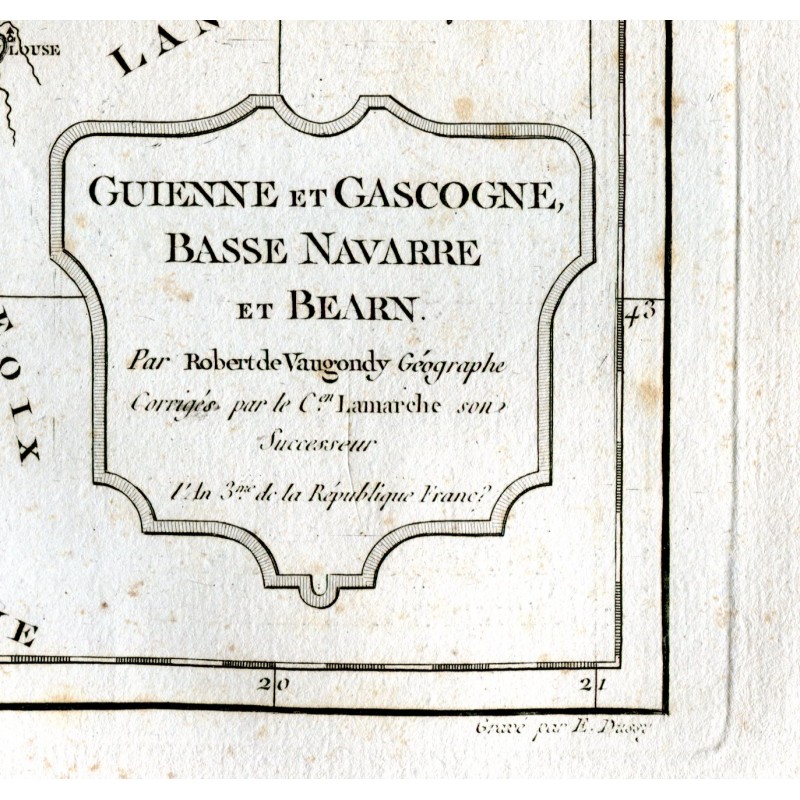 LOUSE
LAN
GUIENNE ET GASCOGNE,
BASSE NAVARRE
ET BEARN.
Par Robert de Vaugondy Géographe
Corrigés par le C.en Lamarche son
Successeur
l'An 3.me de la République Franc.e
43
FOIX
IE
20
21
Gravé par E. Dussy